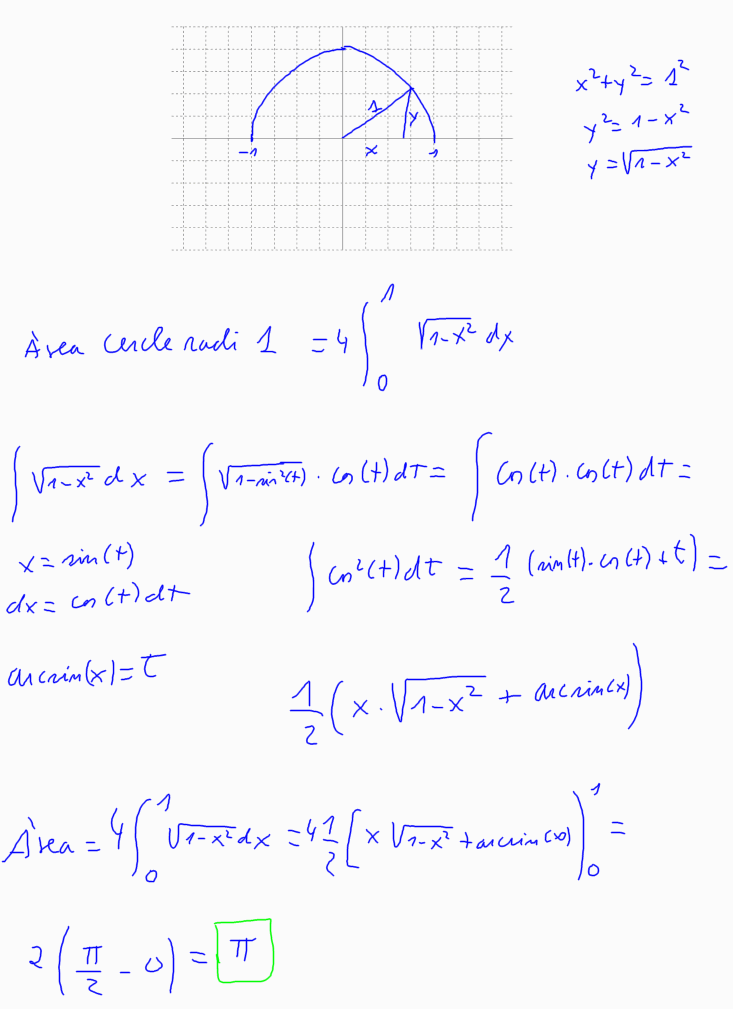 x²+y²= 1²
y²= 1-x²
y=√1-x²
1
y
-1
x
1
Àrea cercle radi 1 = 4 ∫₀¹ √1-x² dx
∫ √1-x² dx = ∫ √1-sin²(t) · cos(t)dt = ∫ cos(t) · cos(t) dt =
x = sin(t)
dx = cos(t)dt
∫ cos²(t)dt = 1/2 (sin(t)·cos(t)+t) =
arcsin(x)=t
1/2 (x·√1-x² + arcsin(x))
Àrea = 4 ∫₀¹ √1-x² dx = 4 1/2 [x √1-x² + arcsin(x)]₀¹ =
2 (π/2 - 0) = π